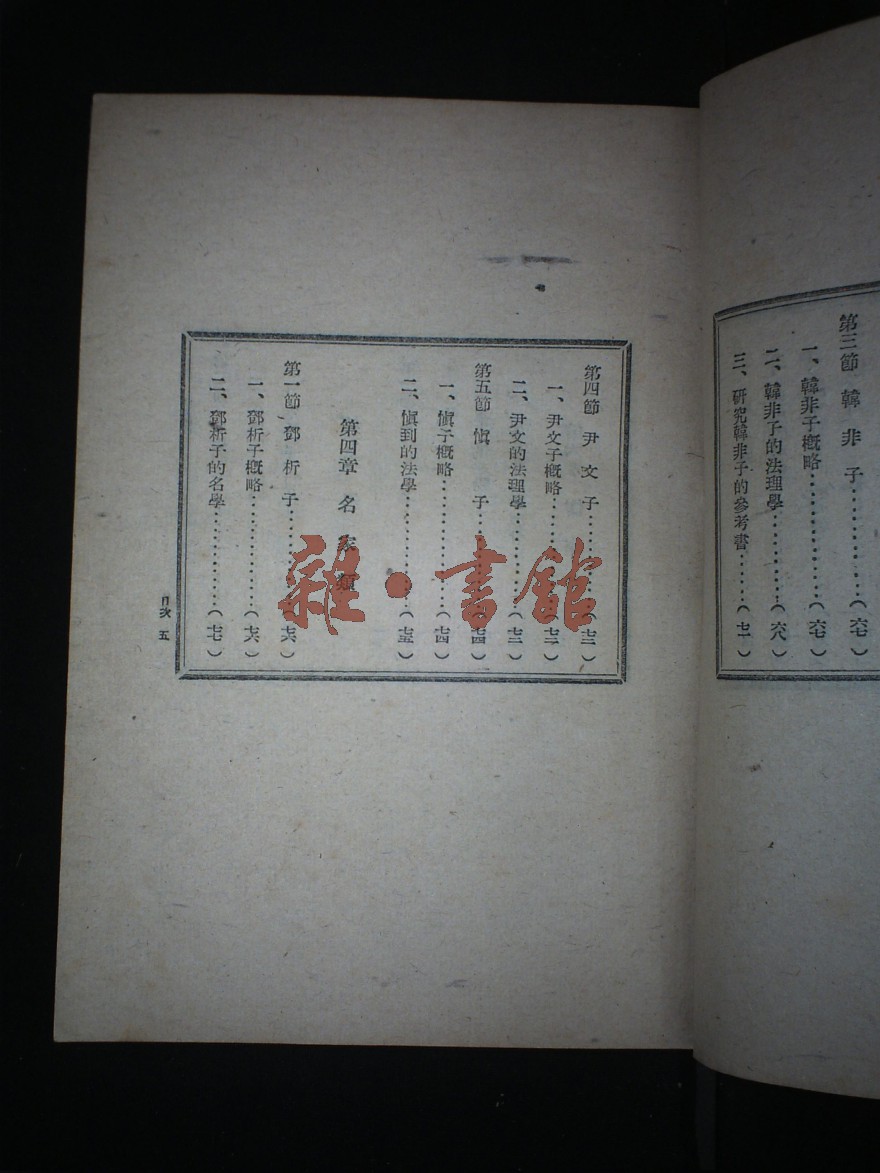 第三節 韓非子……………(六七)
一、韓非子概略……………(六七)
二、韓非子的法理學…………(六八)
三、研究韓非子的參考書……(七一)
第四節 尹文子……………(七二)
一、尹文子概略……………(七二)
二、尹文的法理學…………(七二)
第五節 愼子……………(七四)
一、愼子概略……………(七四)
二、愼到的法學……………(七五)
第四章 名家類
第一節 鄧析子……………(七六)
一、鄧析子概略……………(七六)
二、鄧析子的名學…………(七七)
目次 五
雜·書館